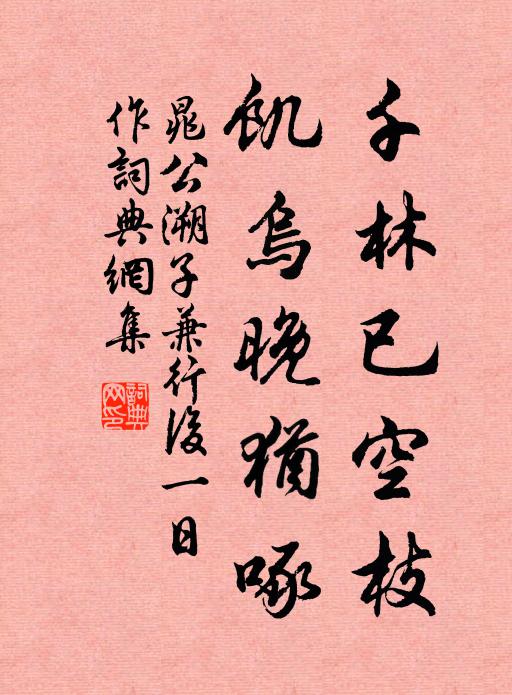 千林已空枝
飢烏晚猶啄
晁公溯子兼行後一日
作詞典網集
詞典
网印